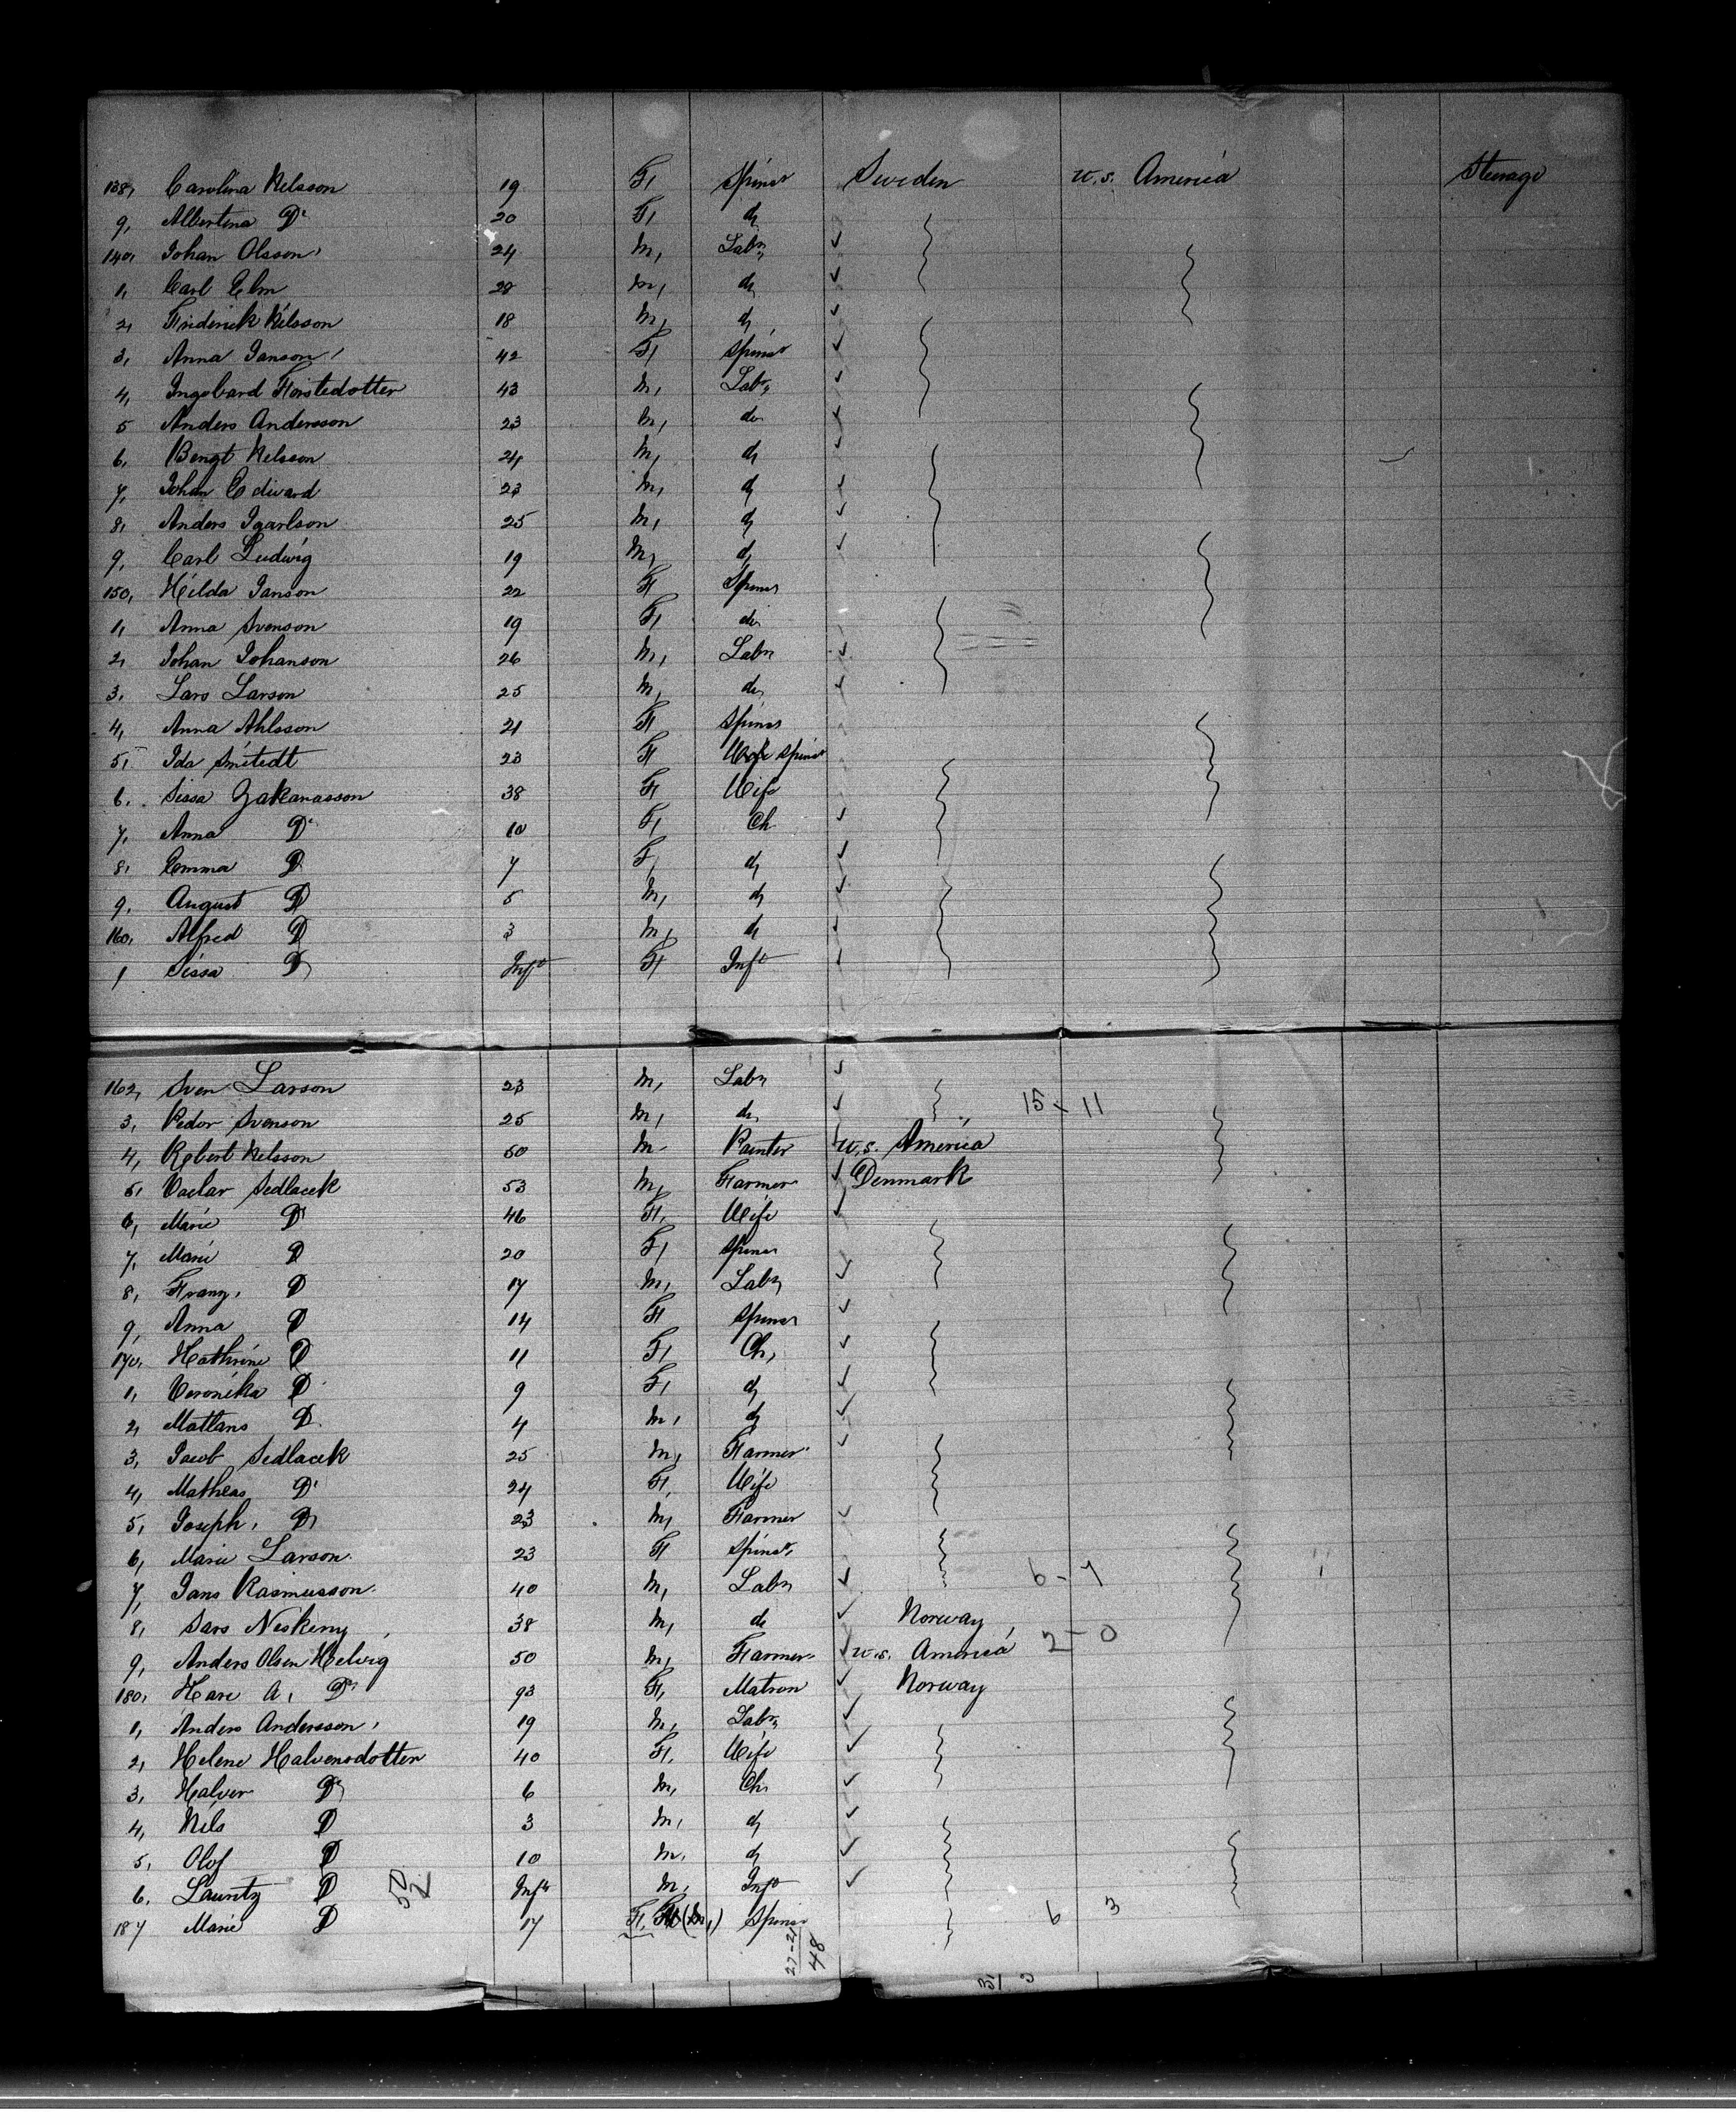 138, Carolina Nelsson 19 F, Spinsr Sweden U.S. America Steerage
9, Albertina Do 20 F, do
140, Johan Olsson 24 M, Labr
1, Carl Elm 28 M, do
2, Frederick Nilsson 18 M, do
3, Anna Janson 42 F, Spinsr
4, Ingebard Forstedotter 43 M, Labr
5 Anders Andersson 23 M, do
6, Bengt Nelsson 24 M, do
7, Johan Edward 23 M, do
8, Anders Igarlson 25 M, do
9, Carl Ludwig 19 M, do
150, Hilda Janson 22 F, Spinsr
1, Anna Svenson 19 F, do
2, Johan Johanson 26 M, Labr
3, Lars Larson 25 M, do
4, Anna Ahlsson 21 F, Spinsr
5, Ida Smitedt 23 F, Spinsr
6, Sissa Zakanasson 38 F, Wife
7, Anna Do 10 F, Ch
8, Emma Do 7 F, do
9, August Do 5 M, do
160, Alfred Do 3 M, do
1 Sissa Do Inft F, Inft
162, Sven Larson 23 M, Labr
3, Peder Svenson 25 M, do 15 - 11
4, Robert Nelsson 50 M Painter U.S. America
5, Vaclar Sedlacek 53 M, Farmer Denmark
6, Marie Do 46 F, Wife
7, Marie Do 20 F, Spinsr
8, Franz, Do 17 M, Labr
9, Anna Do 14 F, Spinsr
170, Kathrine Do 11 F, Ch,
1, Veronika Do 9 F, do
2, Mattans Do 4 M, do
3, Jacob Sedlacek 25 M, Farmer
4, Matheas Do 24 F, Wife
5, Joseph, Do 23 M, Farmer
6, Marie Larson 23 F, Spinsr
7, Jans Rasmusson 40 M, Labr 6 - 7
8, Sars Neskeny 38 M, do Norway
9, Anders Olsen Helvig 50 M, Farmer U.S. America 2 - 0
180, Kare A, Do 93 F, Matron Norway
1, Anders Andersson 19 M, Labr
2, Helene Halvensdotter 40 F, Wife
3, Halver Do 6 M, Ch
4, Nils Do 3 M, do
5, Olof Do 10 M, do
6, Lauritz Do Inft M, Inft
187 Marie Do 17 F, (M,) Spinsr 6 3
27-21
48